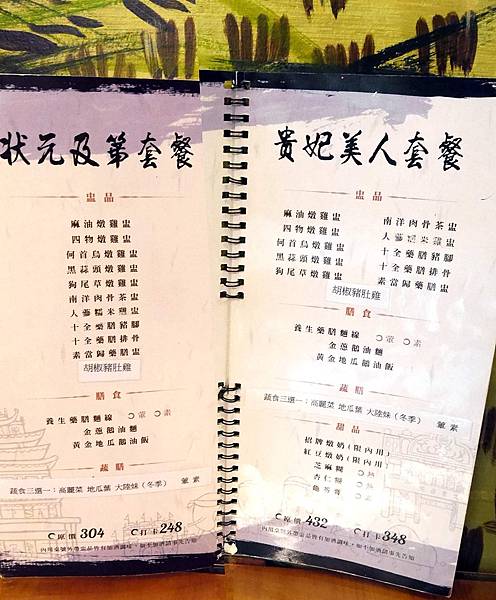 狀元及第套餐
盅品
麻油燉雞盅
四物燉雞盅
何首烏燉雞盅
黑蒜頭燉雞盅
狗尾草燉雞盅
南洋肉骨茶盅
人蔘糯米雞盅
十全藥膳豬腳
十全藥膳排骨
素當歸藥膳盅
胡椒豬肚雞
膳食
養生藥膳麵線 葷 素
金蔥鵝油麵
黃金地瓜鵝油飯
蔬膳
蔬食三選一:高麗菜 地瓜葉 大陸妹(冬季) 葷 素
原價 304 打卡 248
貴妃美人套餐
盅品
麻油燉雞盅
四物燉雞盅
何首烏燉雞盅
黑蒜頭燉雞盅
狗尾草燉雞盅
南洋肉骨茶盅
人蔘糯米雞盅
十全藥膳豬腳
十全藥膳排骨
素當歸藥膳盅
胡椒豬肚雞
膳食
養生藥膳麵線 葷 素
金蔥鵝油麵
黃金地瓜鵝油飯
蔬膳
蔬食三選一:高麗菜 地瓜葉 大陸妹(冬季) 葷 素
甜品
招牌燉奶(限內用)
紅豆燉奶(限內用)
芝麻糊 熱
杏仁糊 熱
龜苓膏
原價 432 打卡 348